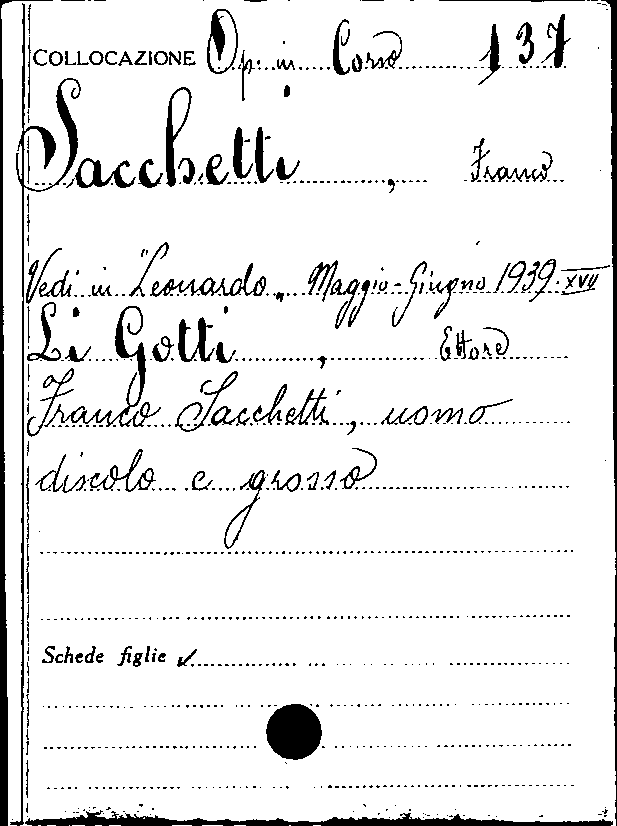 COLLOCAZIONE Op. in Corso 137
Sacchetti, Franco
Vedi in "Leonardo„ Maggio-Giugno 1939-XVII
Li Gotti, Ettore
Franco Sacchetti, uomo
discolo e grosso
Schede figlie ✓